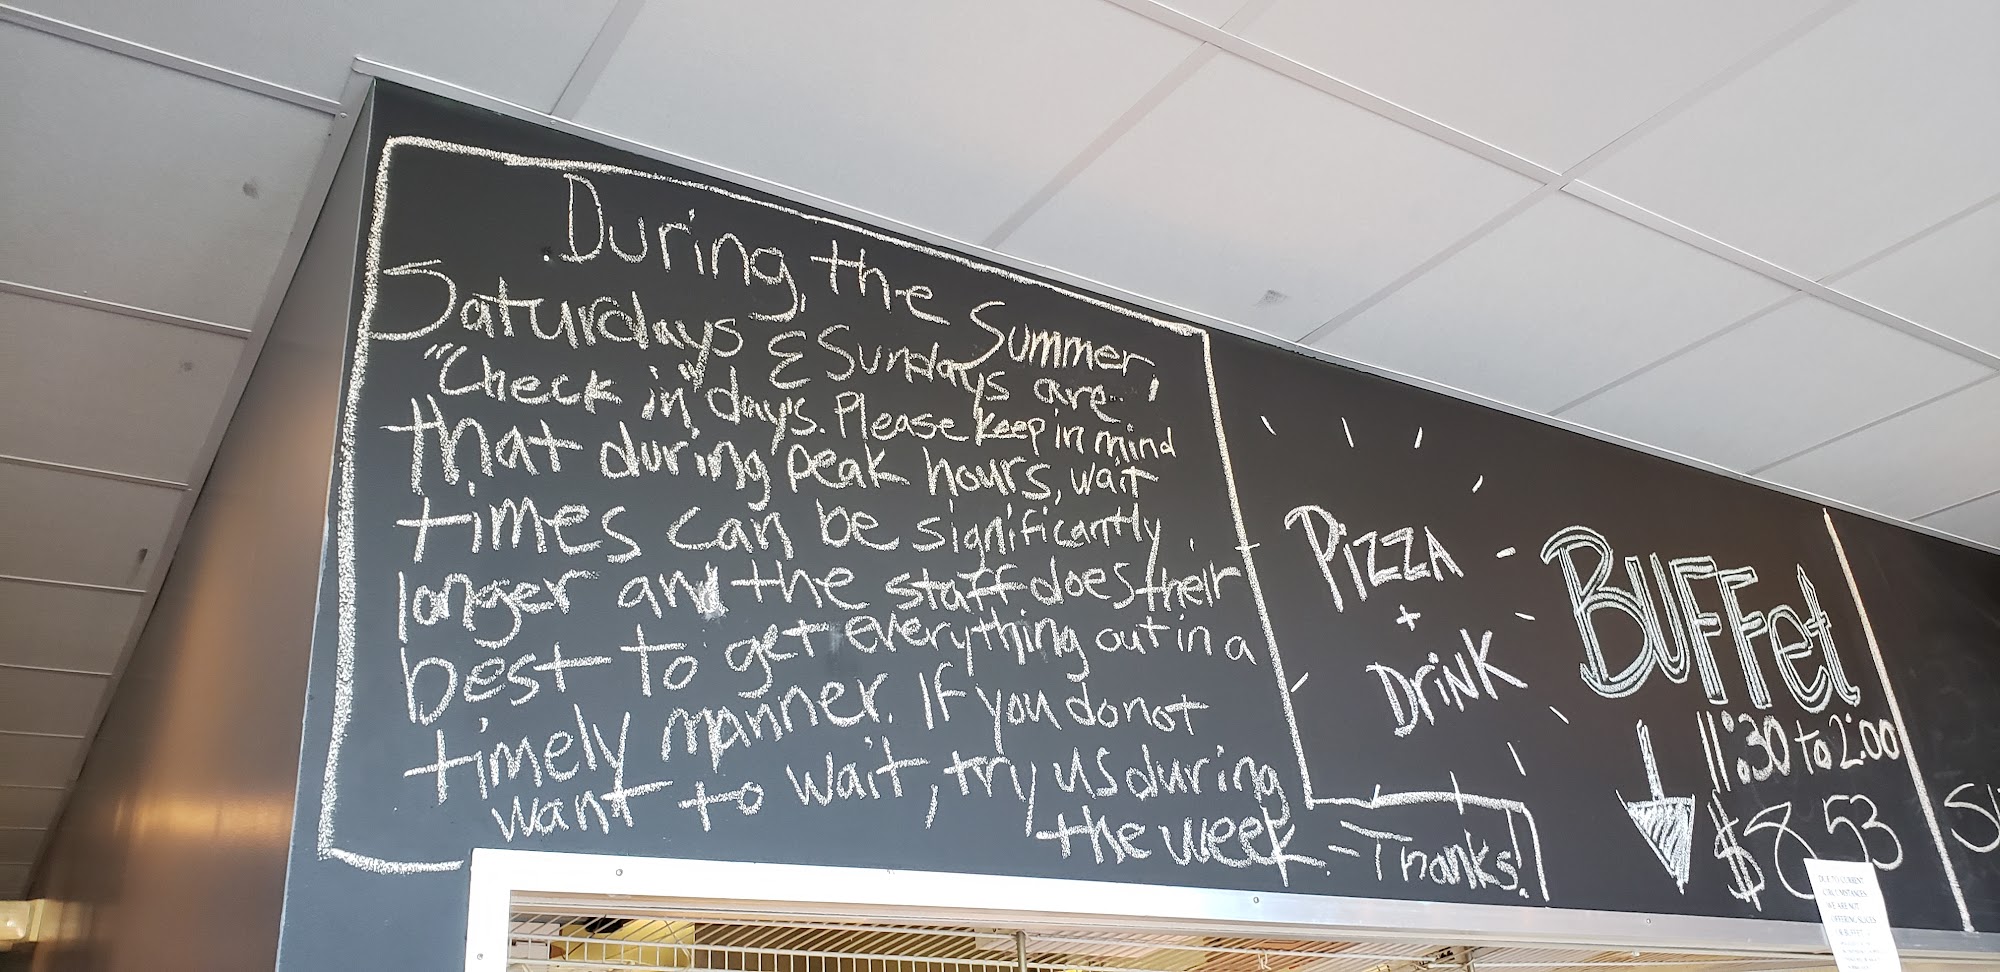 During the Summer,
Saturdays & Sundays are
"Check in" days. Please keep in mind
that during peak hours, wait
times can be significantly
longer and the staff does their
best to get everything out in a
timely manner. If you do not
want to wait, try us during
the week. - Thanks!
Pizza
+
Drink
BUFFet
11:30 to 2:00
$8.53
DUE TO CURRENT
CIRCUMSTANCES
WE ARE NOT
OFFERING SLICES
OR BUFFET